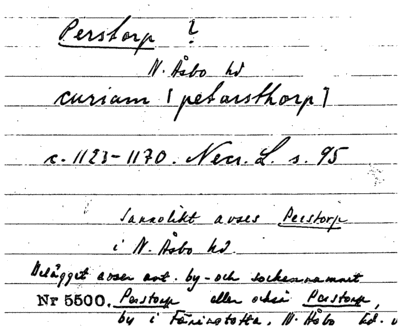 Perstorp ?
N. Åsbo hd
curiam [petarsthorp]
c. 1123-1170. Necr. L. s. 95
Sannolikt avses Perstorp
i N. Åsbo hd.
Belägget avser ant. by- och sockennamnet
Nr 5500. Perstorp eller också Perstorp,
by i Färingtofta, N. Åsbo hd.